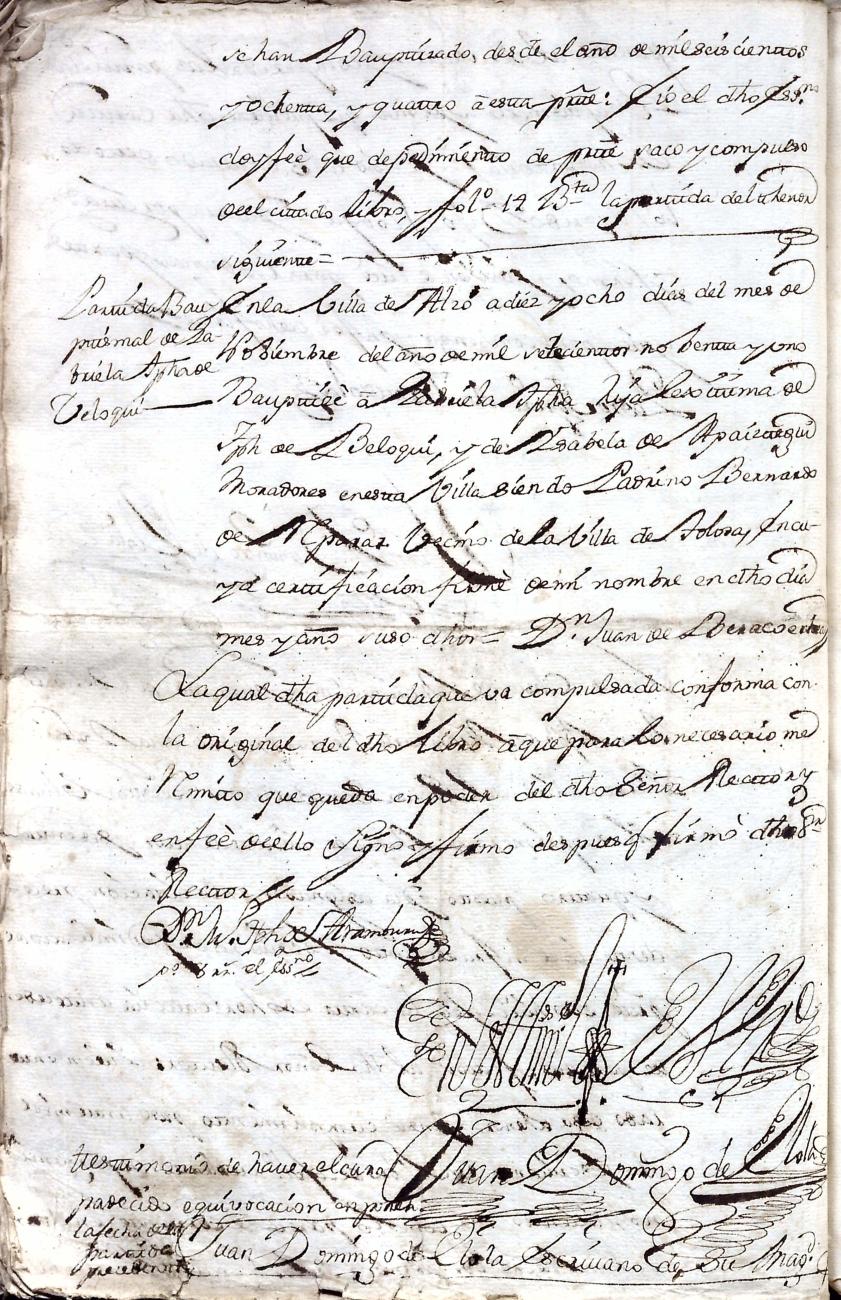 se han Bauptizado, desde el año de mil seis cientos
y ochenta, y quattro â esta pᵗᵉ: E io el dho Essⁿᵒ
doy feè que de pedimiento de pᵗᵉ saco y compulso
de el cittado libro, y folº 14 Bᵗᵃ la partida del thenor
siguiente =
Partida Bau
ptismal de Ga-
briela Jpha de
Veloqui
En la Villa de Alzo a diez y ocho dias del mes de
Nobiembre del año de mil setecientos nobenta y uno
Bauptizè â Gabriela Jpha hija lexitima de
Jph de Beloqui, y de Ysabela de Apaiztegui
Moradores en esta Villa siendo Padrino Bernardo
de Vecino de la Villa de Tolosa, En cu-
ya certificacion firmè de mi nombre en dho dia
mes y año suso dhos = Dⁿ Juan de
La qual dha partida que va compulsada conforma con
la original del dho libro â que para lo necesario me
Remito que queda en poder del dho Señor Rector y
en feè de ello Signo y firmo despues q firmò dho Sʳ
Rector
Dⁿ M. Jph de Aramburu
pº sʳ el Essⁿᵒ
En testimº de Verdad
Juan Domingo de Olola
testimonio de haver el cura
padecido equivocacion en poner
la fecha de la
partida
precedente
Juan Domingo de Olola Escrivano de Su Magᵈ